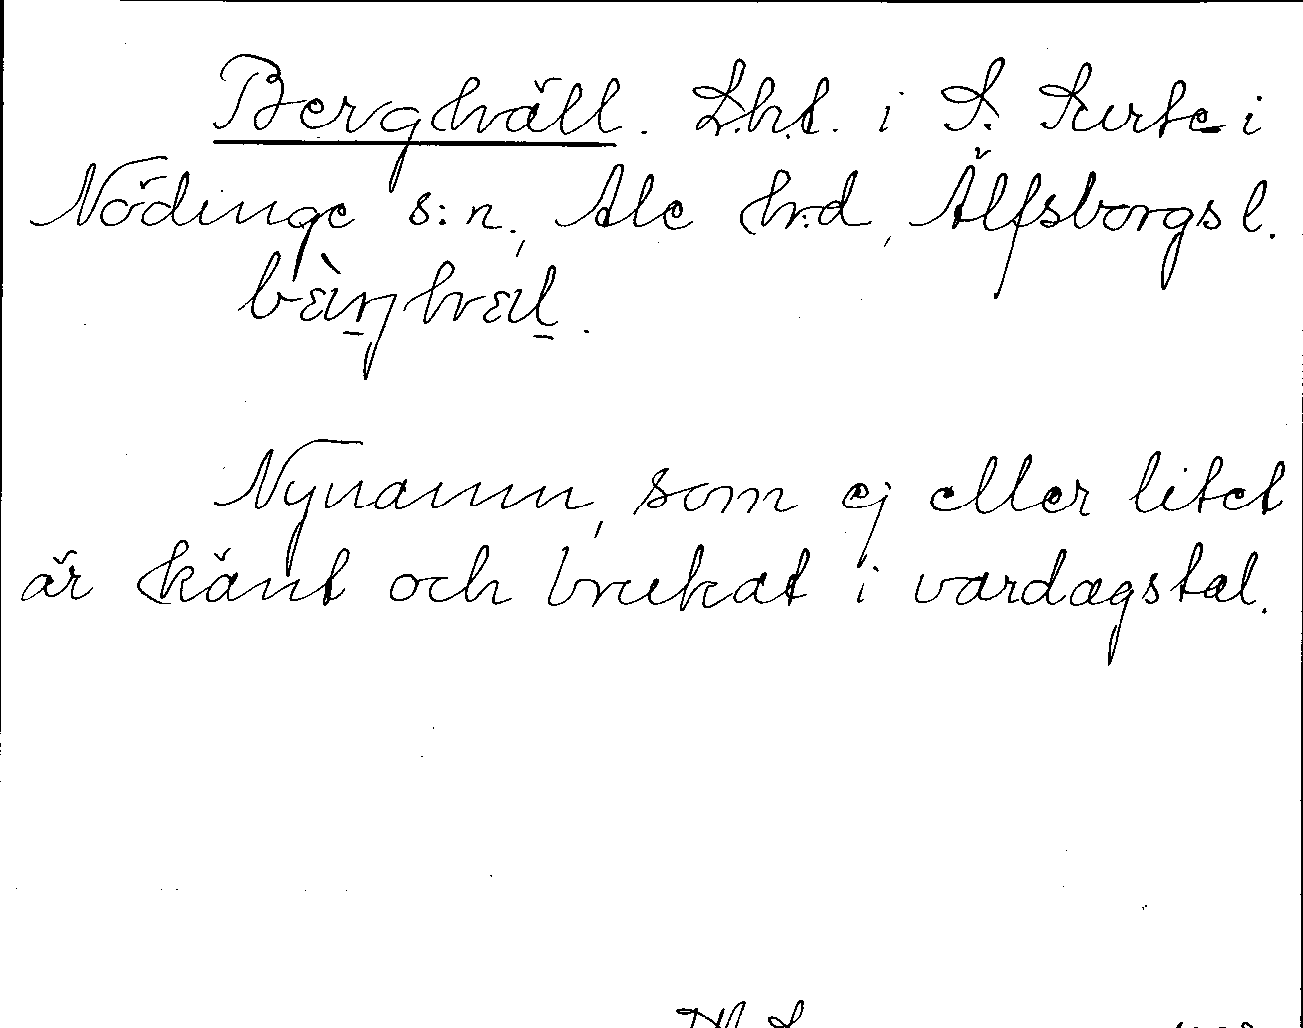 Berghäll. L.h.t. i S. Surte i
Nödinge s:n, Ale h:d, Älfsborgs l.
Nynamn, som ej eller litet
är känt och brukat i vardagstal.